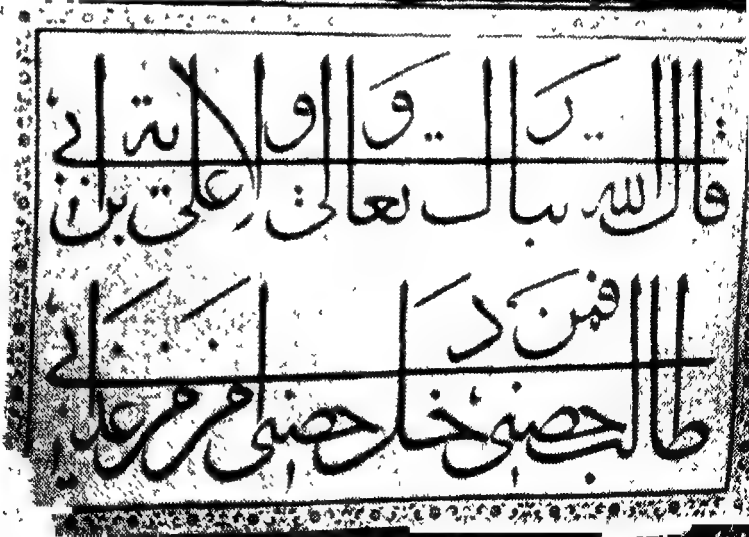 قال الله تبارك وتعالى ولاية علي بن أبي
طالب حصني فمن دخل حصني أمن من عذابي